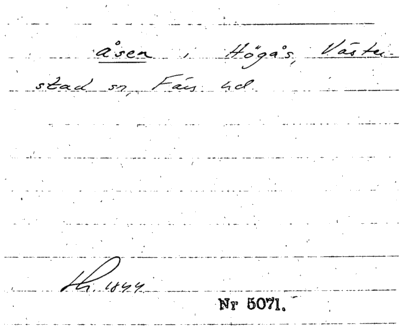 åsen i Högås, Väster-
stad sn, Färs hd.
Lh. 1844
Nr 5071.